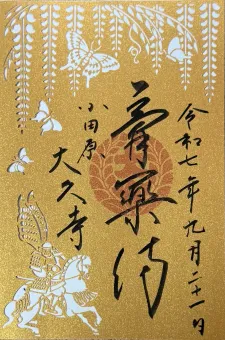 令和七年九月二十一日
膏薬侍
小田原
大久寺